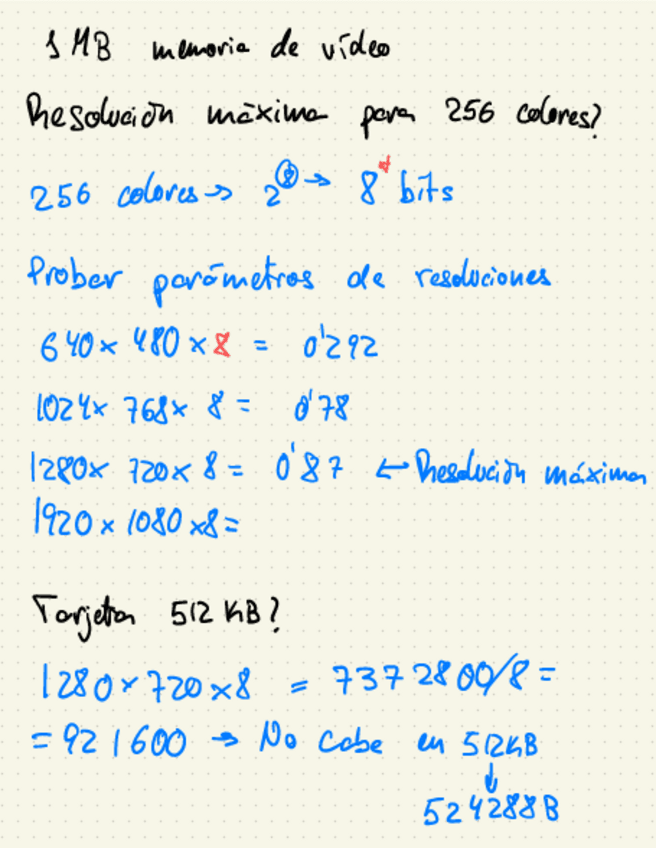 1 MB memoria de vídeo
Resolución máxima para 256 colores?
256 colores → 2⁸ → 8 bits
Probar parámetros de resoluciones
640 x 480 x 8 = 0'292
1024 x 768 x 8 = 0'78
1280 x 720 x 8 = 0'87 ← Resolución máxima
1920 x 1080 x 8 =
Tarjeta 512 KB?
1280 x 720 x 8 = 7372800/8 =
= 921600 → No cabe en 512KB
↓
524288 B